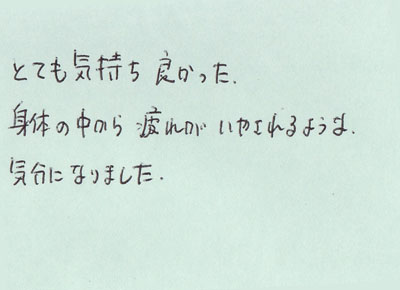 とても気持ち良かった.
身体の中から疲れがいやされるような.
気分になりました.